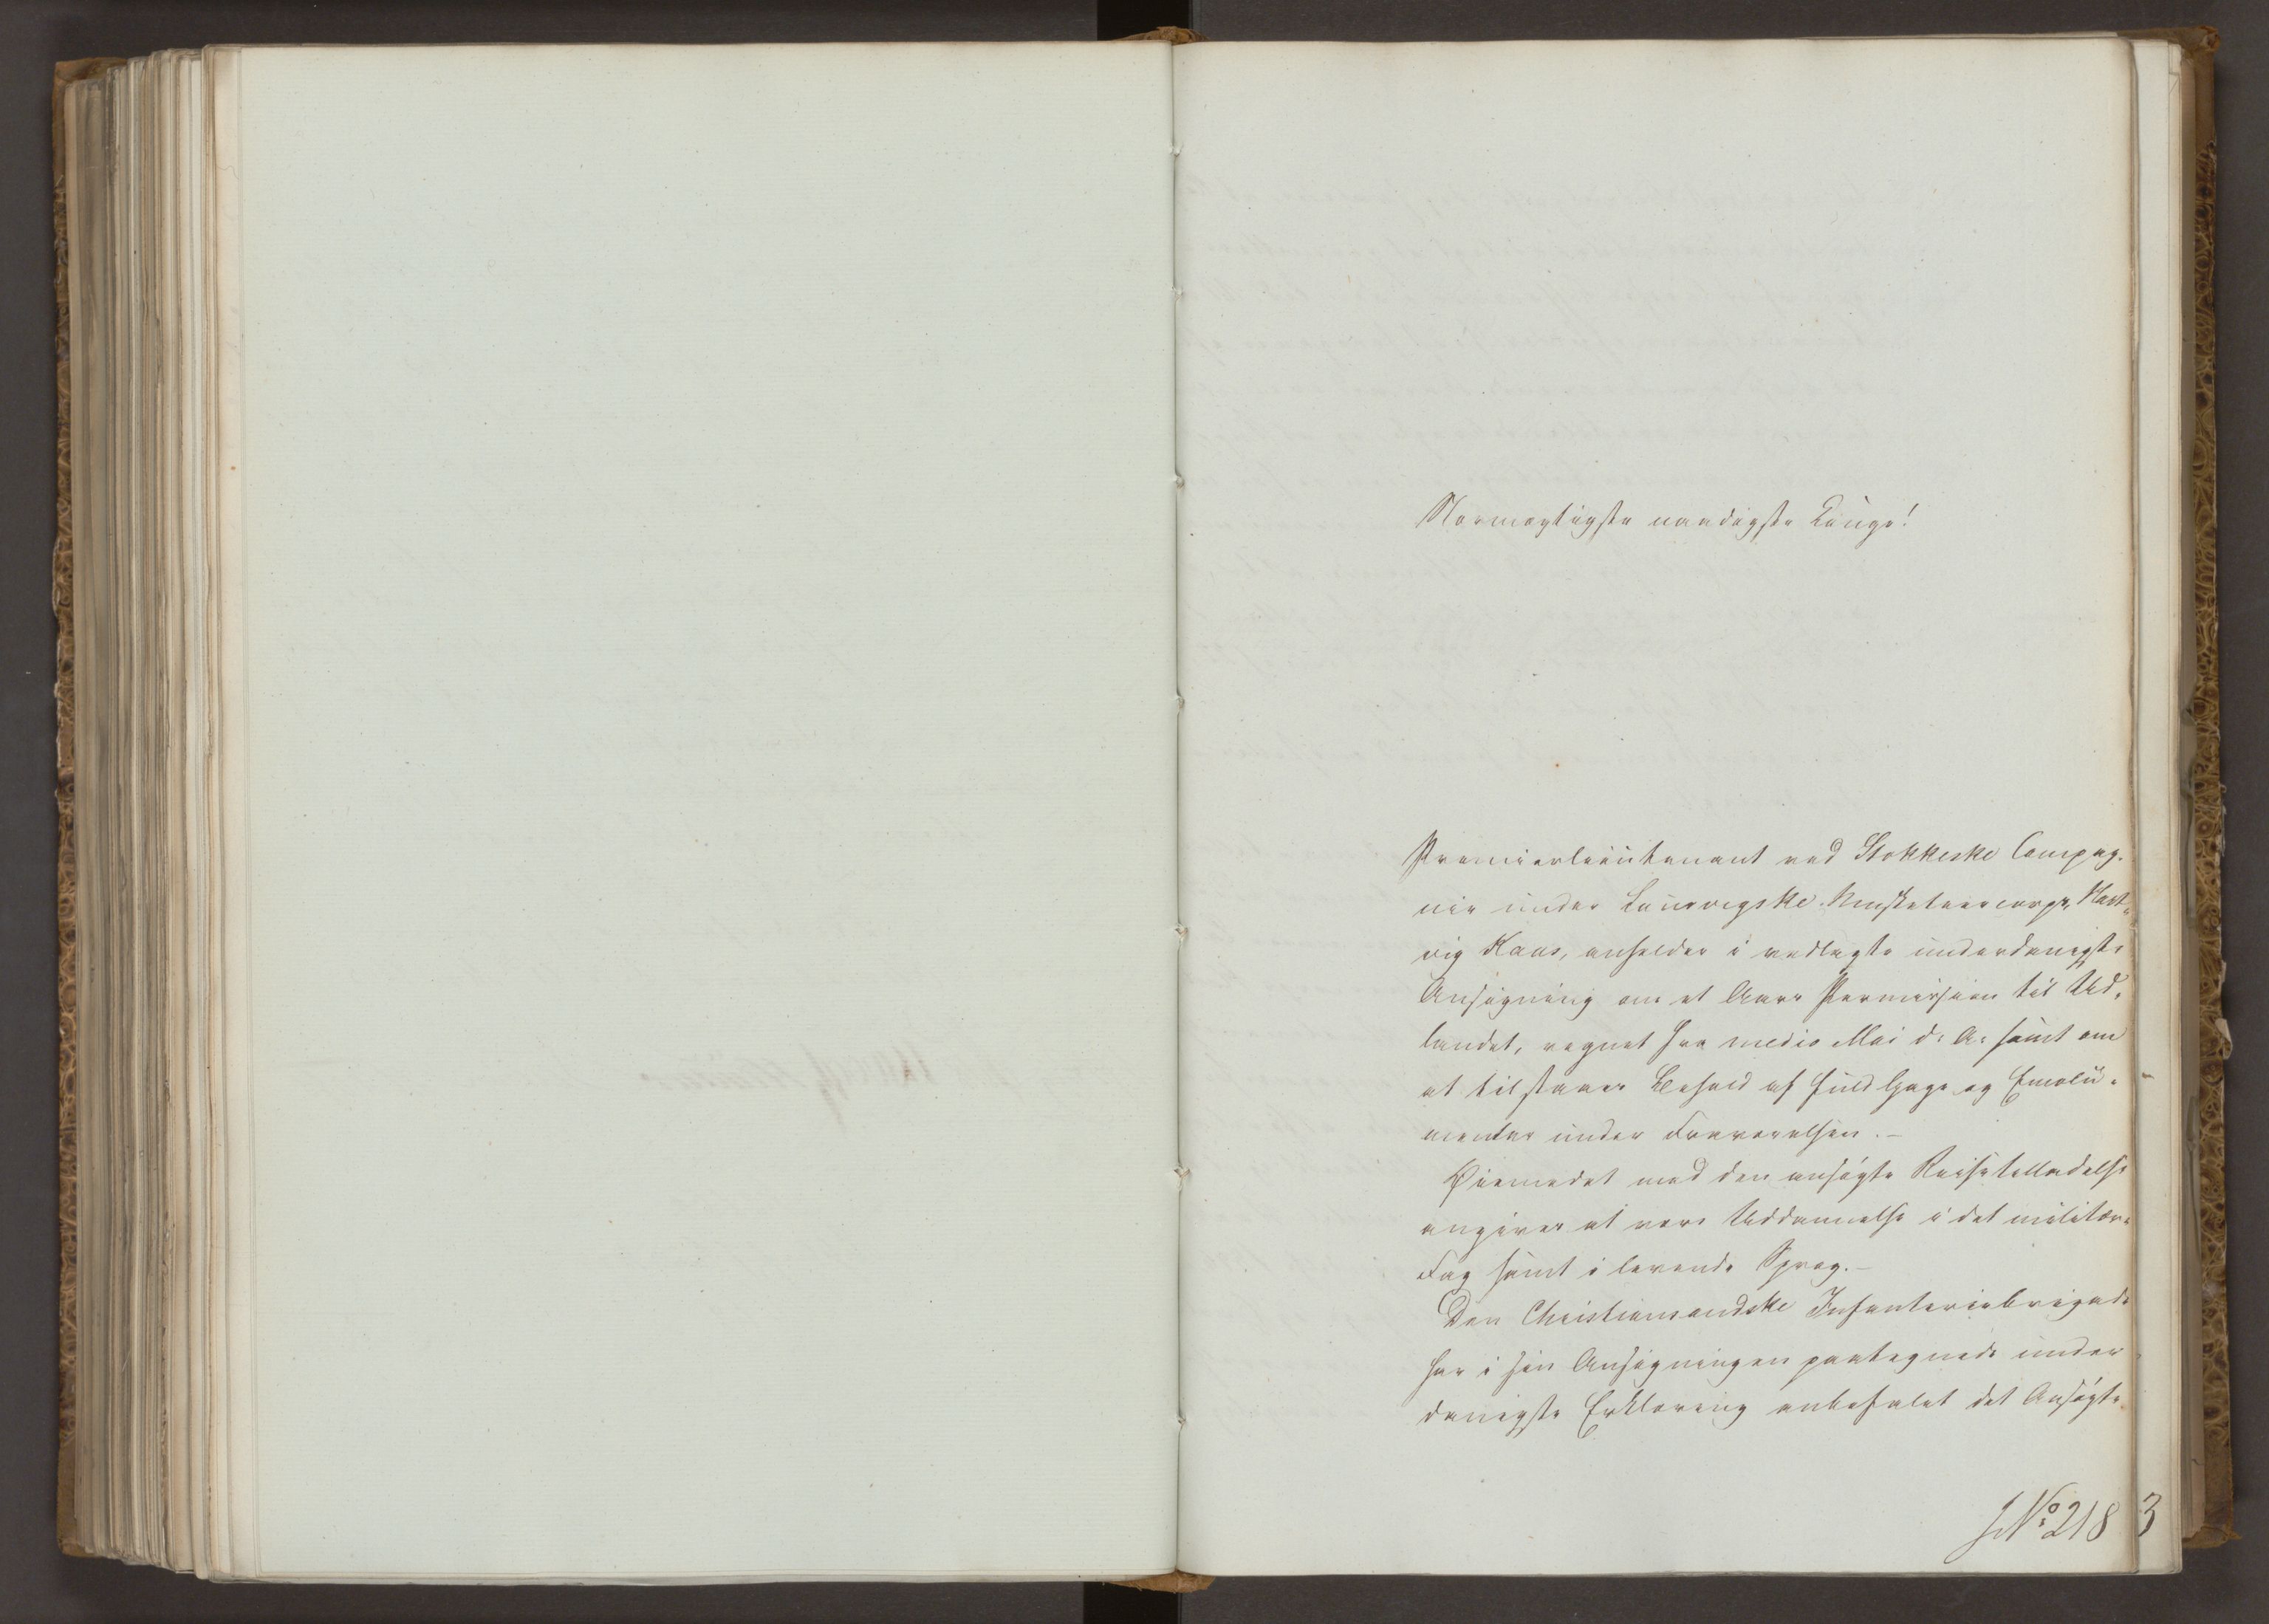 Stormægtigste naadigste Konge!
Premierlieutenant ved Stokkeske Compag-
nie under Laurvigske Musketeercorps, Hart-
vig Kaas, anholder i vedlagte underdanigste
Ansøgning om et Aars Permission til Ud-
landet, regnet fra medio Mai d: A: samt om
at tilstaaes Behold af fuld Gage og Emolu-
menter under Fraværelsen.-
Øiemedet med den ansøgte Reisetilladelse
angives at være Uddannelse i det militære
Fag samt i levende Sprog.-
Den Christiansandske Infanteriebrigade
har i sin Ansøgningen paategnede under-
danigste Erklæring anbefalet det Ansøgte
JNo: 218
3